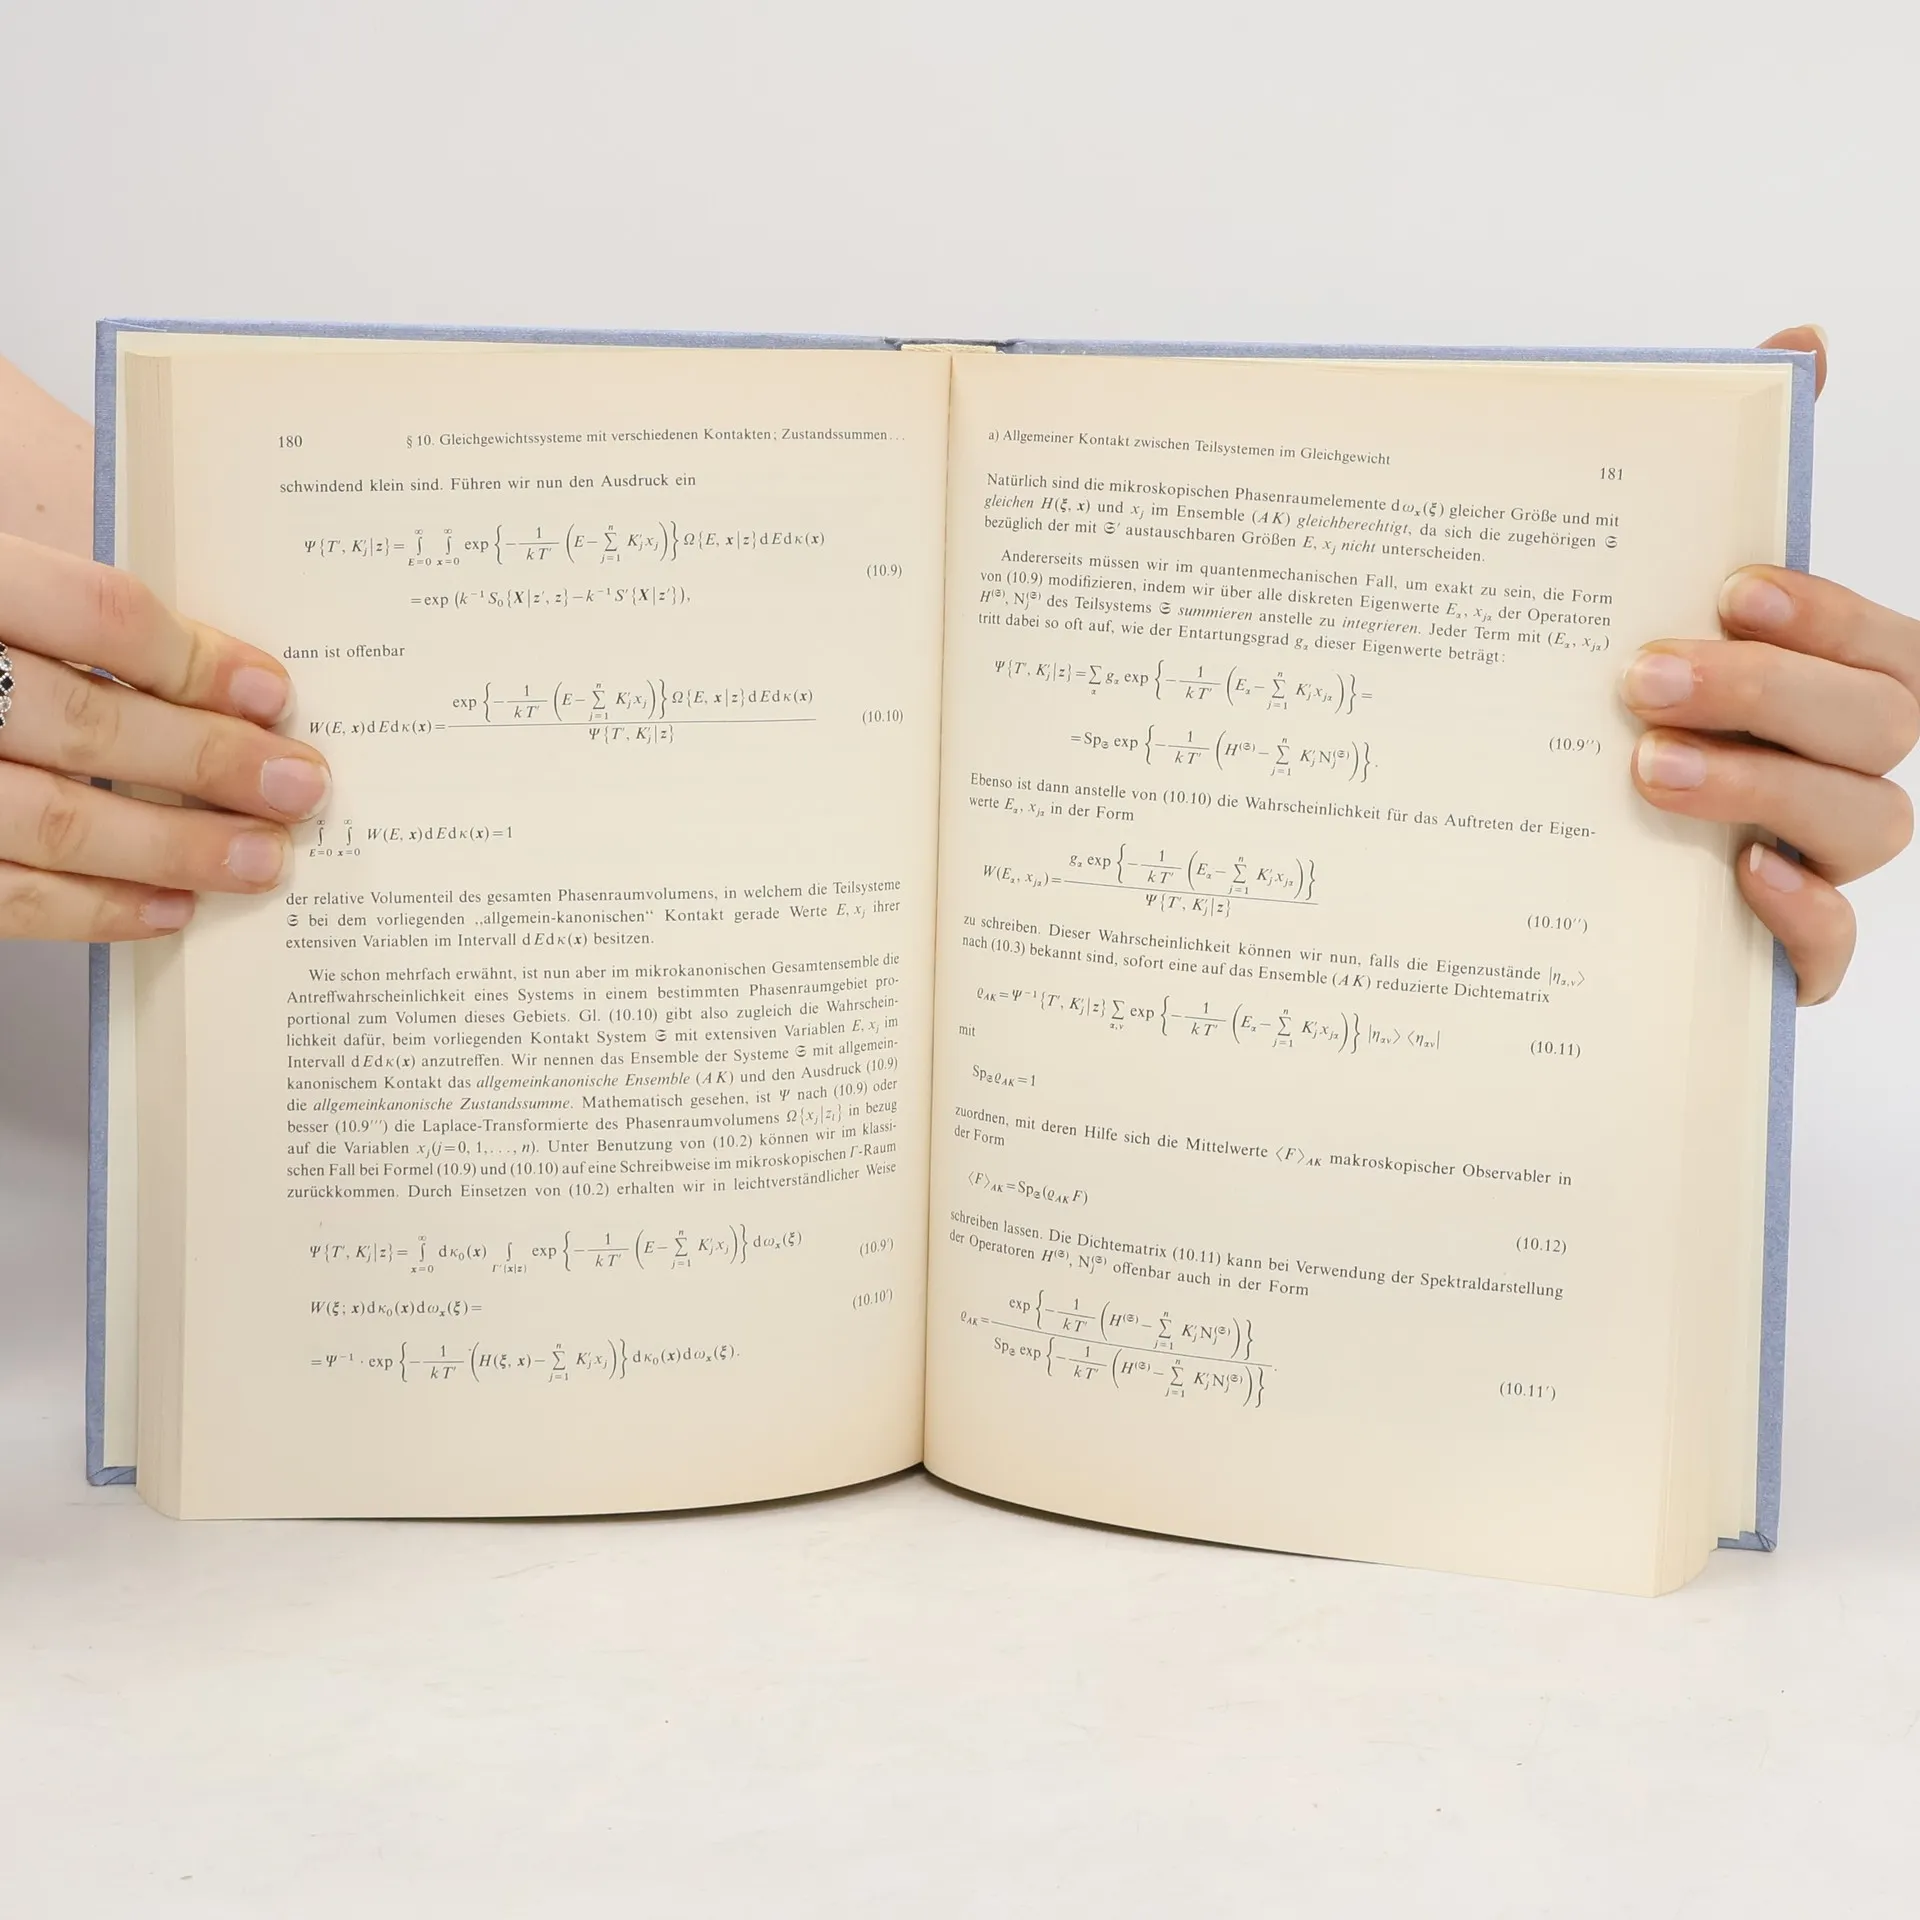 180 § 10. Gleichgewichtssysteme mit verschiedenen Kontakten; Zustandssummen...
schwindend klein sind. Führen wir nun den Ausdruck ein
Ψ{T′, K′ⱼ|z} = ∫_{E=0}^{∞} ∫_{x=0}^{∞} exp {−1/(kT′) (E − ∑_{j=1}^{n} K′ⱼxⱼ)} Ω{E, x|z} dE dκ(x)
= exp (k⁻¹S₀{X|z′, z} − k⁻¹S′{X|z′}), (10.9)
dann ist offenbar
W(E, x) dE dκ(x) = exp {−1/(kT′) (E − ∑_{j=1}^{n} K′ⱼxⱼ)} Ω{E, x|z} dE dκ(x) / Ψ{T′, K′ⱼ|z} (10.10)
∫_{E=0}^{∞} ∫_{x=0}^{∞} W(E, x) dE dκ(x) = 1
der relative Volumenteil des gesamten Phasenraumvolumens, in welchem die Teilsysteme
𝔖 bei dem vorliegenden „allgemein-kanonischen“ Kontakt gerade Werte E, xⱼ ihrer
extensiven Variablen im Intervall dE dκ(x) besitzen.
Wie schon mehrfach erwähnt, ist nun aber im mikrokanonischen Gesamtensemble die
Antreffwahrscheinlichkeit eines Systems in einem bestimmten Phasenraumgebiet pro-
portional zum Volumen dieses Gebiets. Gl. (10.10) gibt also zugleich die Wahrschein-
lichkeit dafür, beim vorliegenden Kontakt System 𝔖 mit extensiven Variablen E, xⱼ im
Intervall dE dκ(x) anzutreffen. Wir nennen das Ensemble der Systeme 𝔖 mit allgemein-
kanonischem Kontakt das allgemeinkanonische Ensemble (AK) und den Ausdruck (10.9)
die allgemeinkanonische Zustandssumme. Mathematisch gesehen, ist Ψ nach (10.9) oder
besser (10.9‴) die Laplace-Transformierte des Phasenraumvolumens Ω{xⱼ|zᵢ} in bezug
auf die Variablen xⱼ(j=0, 1,..., n). Unter Benutzung von (10.2) können wir im klassi-
schen Fall bei Formel (10.9) und (10.10) auf eine Schreibweise im mikroskopischen Γ-Raum
zurückkommen. Durch Einsetzen von (10.2) erhalten wir in leichtverständlicher Weise
Ψ{T′, K′ⱼ|z} = ∫_{x=0}^{∞} dκ₀(x) ∫_{Γ{x|z}} exp {−1/(kT′) (E − ∑_{j=1}^{n} K′ⱼxⱼ)} dωₓ(ξ) (10.9′)
W(ξ; x) dκ₀(x) dωₓ(ξ) = (10.10′)
= Ψ⁻¹ · exp {−1/(kT′) (H(ξ, x) − ∑_{j=1}^{n} K′ⱼxⱼ)} dκ₀(x) dωₓ(ξ).
a) Allgemeiner Kontakt zwischen Teilsystemen im Gleichgewicht 181
Natürlich sind die mikroskopischen Phasenraumelemente dωₓ(ξ) gleicher Größe und mit
gleichen H(ξ, x) und xⱼ im Ensemble (AK) gleichberechtigt, da sich die zugehörigen 𝔖
bezüglich der mit 𝔖′ austauschbaren Größen E, xⱼ nicht unterscheiden.
Andererseits müssen wir im quantenmechanischen Fall, um exakt zu sein, die Form
von (10.9) modifizieren, indem wir über alle diskreten Eigenwerte E_α, x_{jα} der Operatoren
H^(𝔖), Nⱼ^(𝔖) des Teilsystems 𝔖 summieren anstelle zu integrieren. Jeder Term mit (E_α, x_{jα})
tritt dabei so oft auf, wie der Entartungsgrad g_α dieser Eigenwerte beträgt:
Ψ{T′, K′ⱼ|z} = ∑_α g_α exp {−1/(kT′) (E_α − ∑_{j=1}^{n} K′ⱼx_{jα})} =
= Sp_𝔖 exp {−1/(kT′) (H^(𝔖) − ∑_{j=1}^{n} K′ⱼNⱼ^(𝔖))}. (10.9″)
Ebenso ist dann anstelle von (10.10) die Wahrscheinlichkeit für das Auftreten der Eigen-
werte E_α, x_{jα} in der Form
W(E_α, x_{jα}) = g_α exp {−1/(kT′) (E_α − ∑_{j=1}^{n} K′ⱼx_{jα})} / Ψ{T′, K′ⱼ|z} (10.10″)
zu schreiben. Dieser Wahrscheinlichkeit können wir nun, falls die Eigenzustände |η_{α,ν}⟩
nach (10.3) bekannt sind, sofort eine auf das Ensemble (AK) reduzierte Dichtematrix
ϱ_{AK} = Ψ⁻¹{T′, K′ⱼ|z} ∑_{α,ν} exp {−1/(kT′) (E_α − ∑_{j=1}^{n} K′ⱼx_{jα})} |η_{αν}⟩ ⟨η_{αν}| (10.11)
mit
Sp_𝔖 ϱ_{AK} = 1
zuordnen, mit deren Hilfe sich die Mittelwerte ⟨F⟩_{AK} makroskopischer Observabler in
der Form
⟨F⟩_{AK} = Sp_𝔖(ϱ_{AK} F) (10.12)
schreiben lassen. Die Dichtematrix (10.11) kann bei Verwendung der Spektraldarstellung
der Operatoren H^(𝔖), Nⱼ^(𝔖) offenbar auch in der Form
ϱ_{AK} = exp {−1/(kT′) (H^(𝔖) − ∑_{j=1}^{n} K′ⱼNⱼ^(𝔖))} / Sp_𝔖 exp {−1/(kT′) (H^(𝔖) − ∑_{j=1}^{n} K′ⱼNⱼ^(𝔖))}. (10.11′)